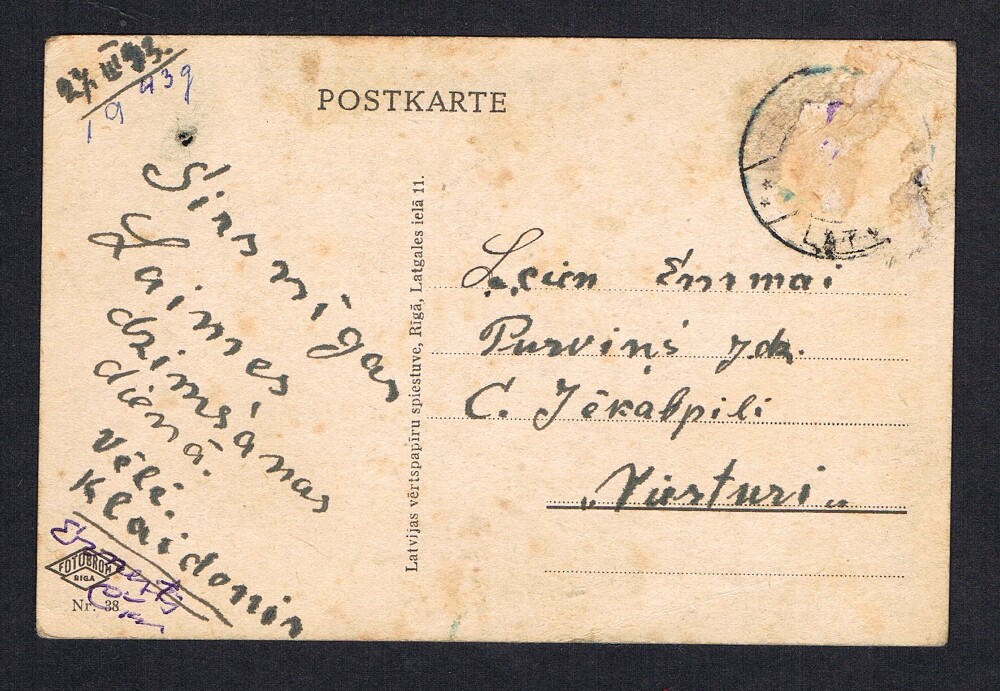 27. III 93.
19439
POSTKARTE
Sirsnīgas
Laimes
dzimšanas
dienā.
Vēlē.
Klaidonis
Ernests
FOTOBROM
RIGA
Nr. 38
Latvijas vērtspapīru spiestuve, Rīgā, Latgales ielā 11.
LATV
Emmai
Purviņš
C. Jēkabpili.
„Viesturi„